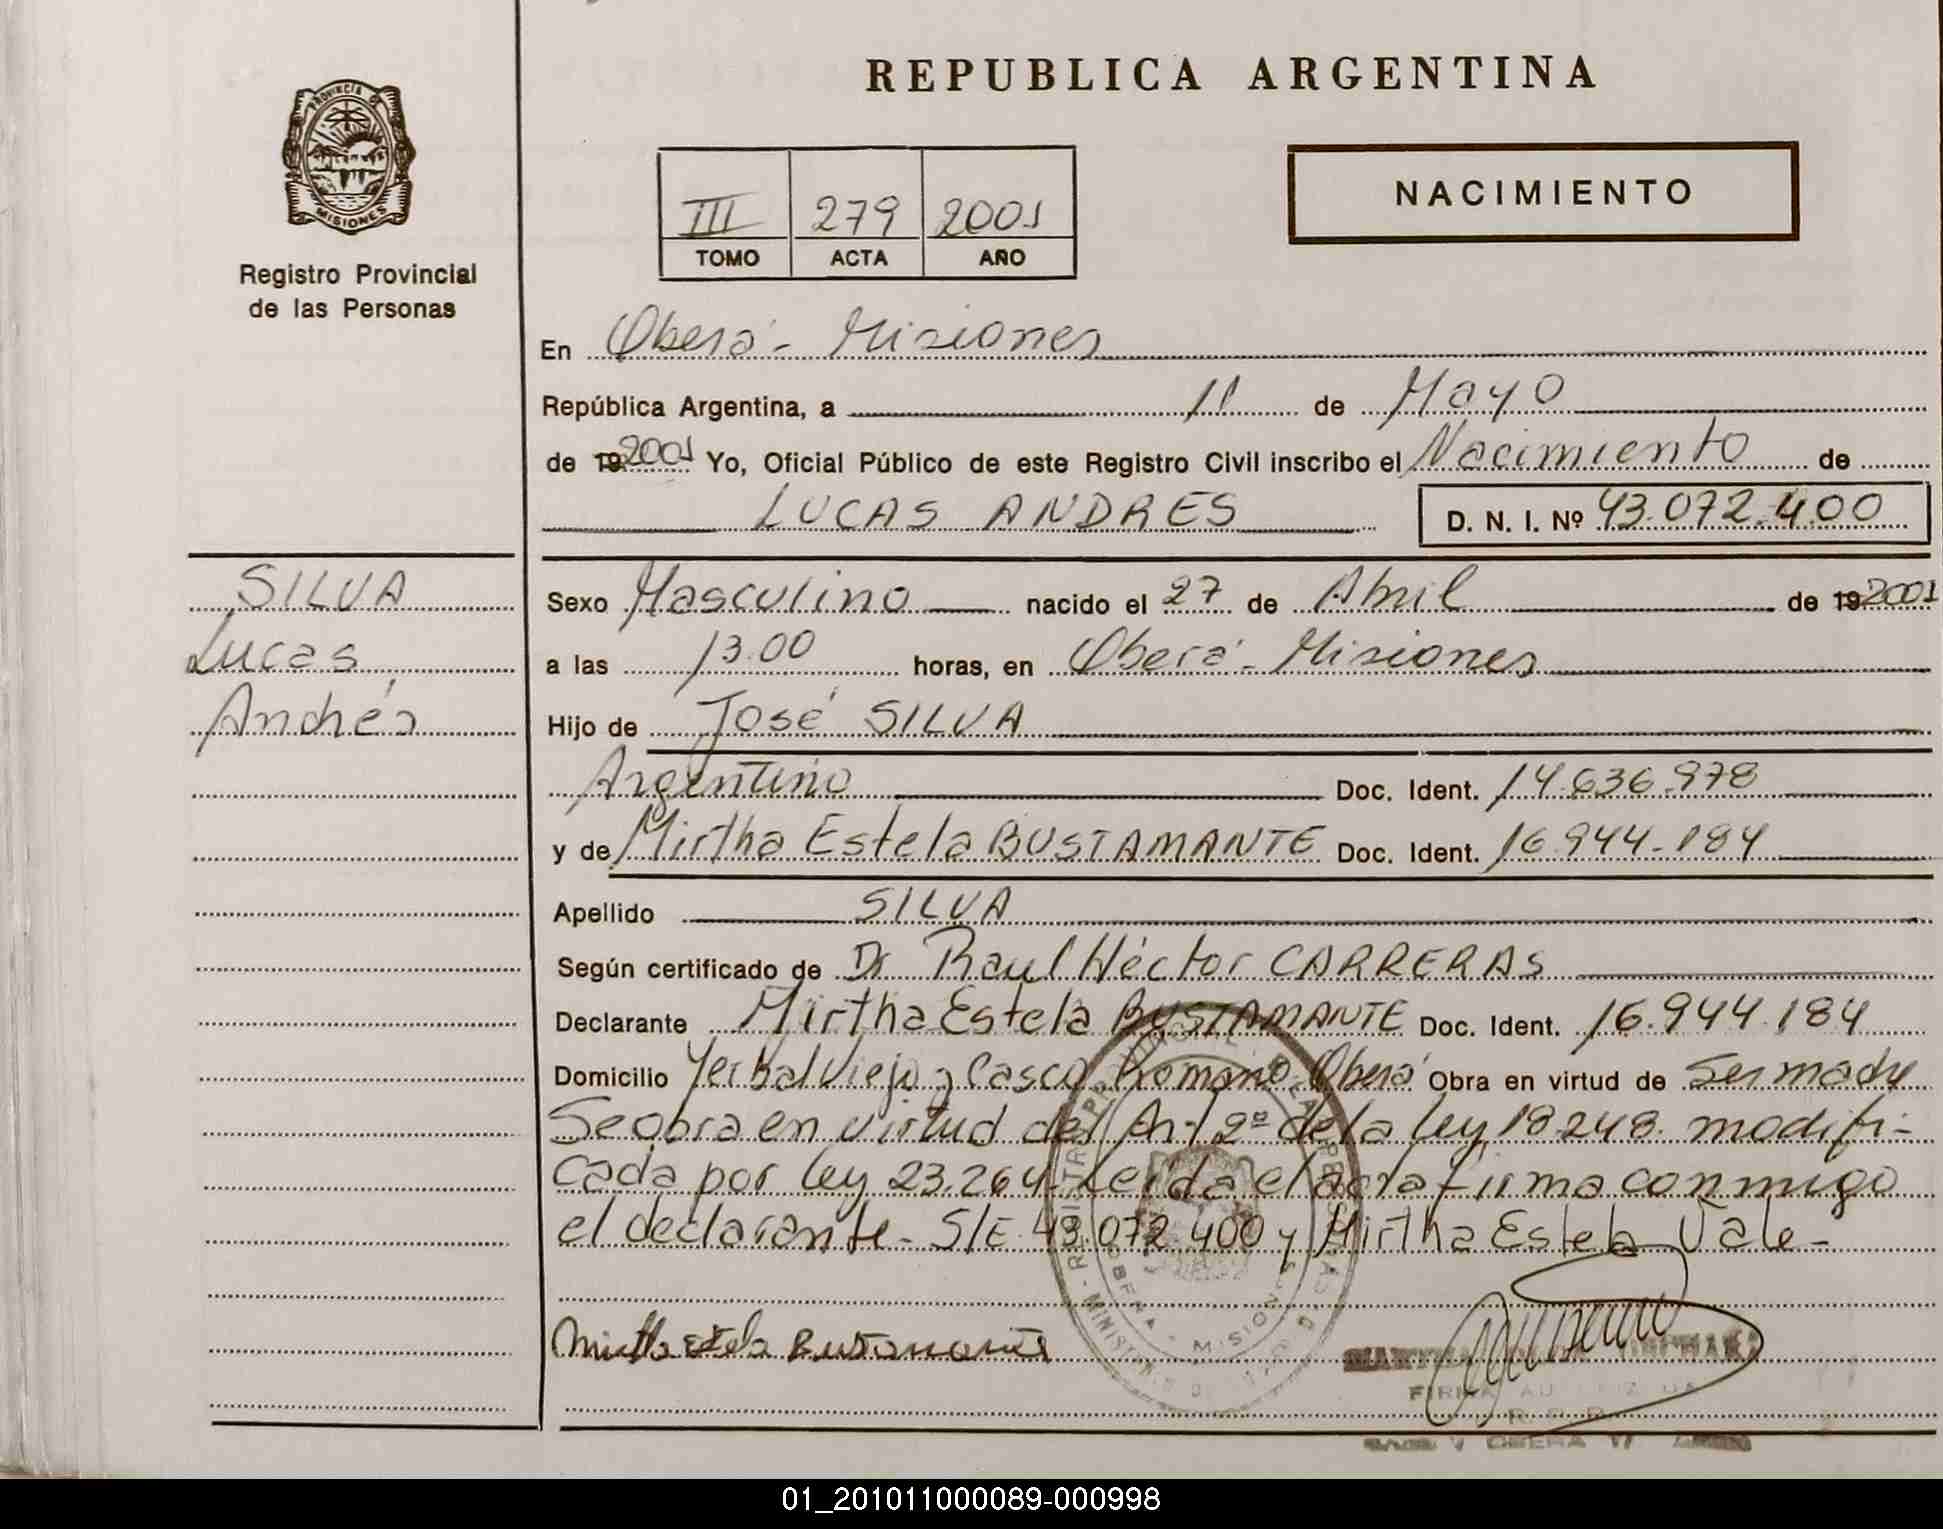 REPUBLICA ARGENTINA
PROVINCIA DE
MISIONES
Registro Provincial
de las Personas
III 279 2001
TOMO ACTA AÑO
NACIMIENTO
En Oberá - Misiones
República Argentina, a 11 de Mayo
de 19 2001 Yo, Oficial Público de este Registro Civil inscribo el Nacimiento de
LUCAS ANDRES D. N. I. Nº 43.072.400
SILVA
Lucas
Andrés
Sexo Masculino nacido el 27 de Abril de 19 2001
a las 13.00 horas, en Oberá - Misiones
Hijo de José SILVA
Argentino Doc. Ident. 14.636.978
y de Mirtha Estela BUSTAMANTE Doc. Ident. 16.944.184
Apellido SILVA
Según certificado de Dr Raul Héctor CARRERAS
Declarante Mirtha Estela BUSTAMANTE Doc. Ident. 16.944.184
Domicilio Yerbal Viejo y Casco Romano Oberá Obra en virtud de Ser madre
Se obra en virtud del Art 2º de la ley 18.248. modifi-
cada por ley 23.264 - Leída el acta firma conmigo
el declarante - S/E 43.072.400 y Mirtha Estela Vale -
OBERA - MISIONES
Mirtha Estela Bustamante
FIRMA AUTORIZADA
01_201011000089-000998